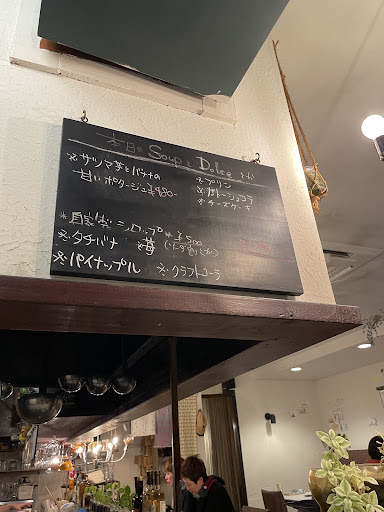 本日の Soup と Dolce とか
※サツマ芋とバナナの
甘いポタージュ ¥480-
※プリン
※ガトーショコラ
※チーズケーキ
*自家製シロップ* ¥500
※タチバナ ※苺
※パイナップル ※クラフトコーラ